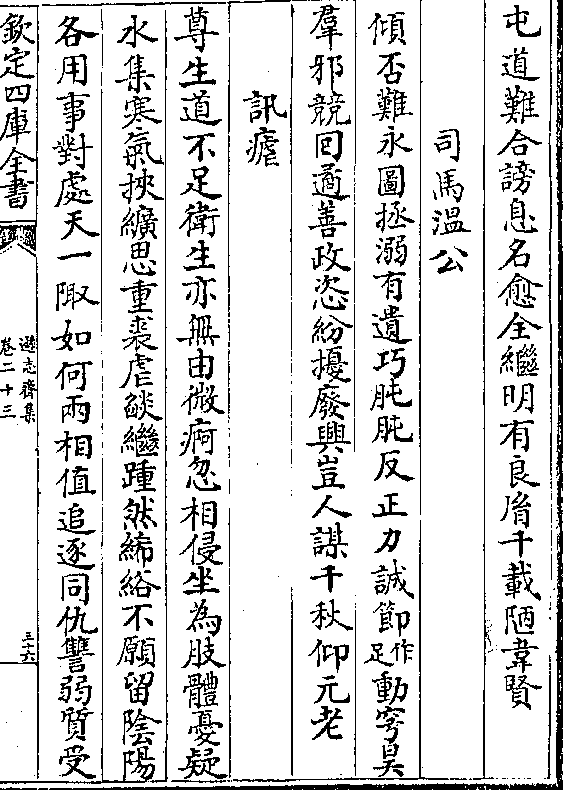 屯道難合謗息名愈全繼明有良胤千載陋韋賢
司馬溫公
傾否難永圖拯溺有遺巧肫肫反正力誠節足作動穹昊
羣邪競回遹善政恣紛擾廢興豈人謀千秋仰元老
訊瘧
尊生道不足衛生亦無由微痾忽相侵坐為肢體憂疑
水集寒氣挾纊思重裘虐燄繼踵然絺綌不願留陰陽
各用事對處天一陬如何兩相值追逐同仇讐弱質受
欽定四庫全書
遜志齋集
卷二十三
三六